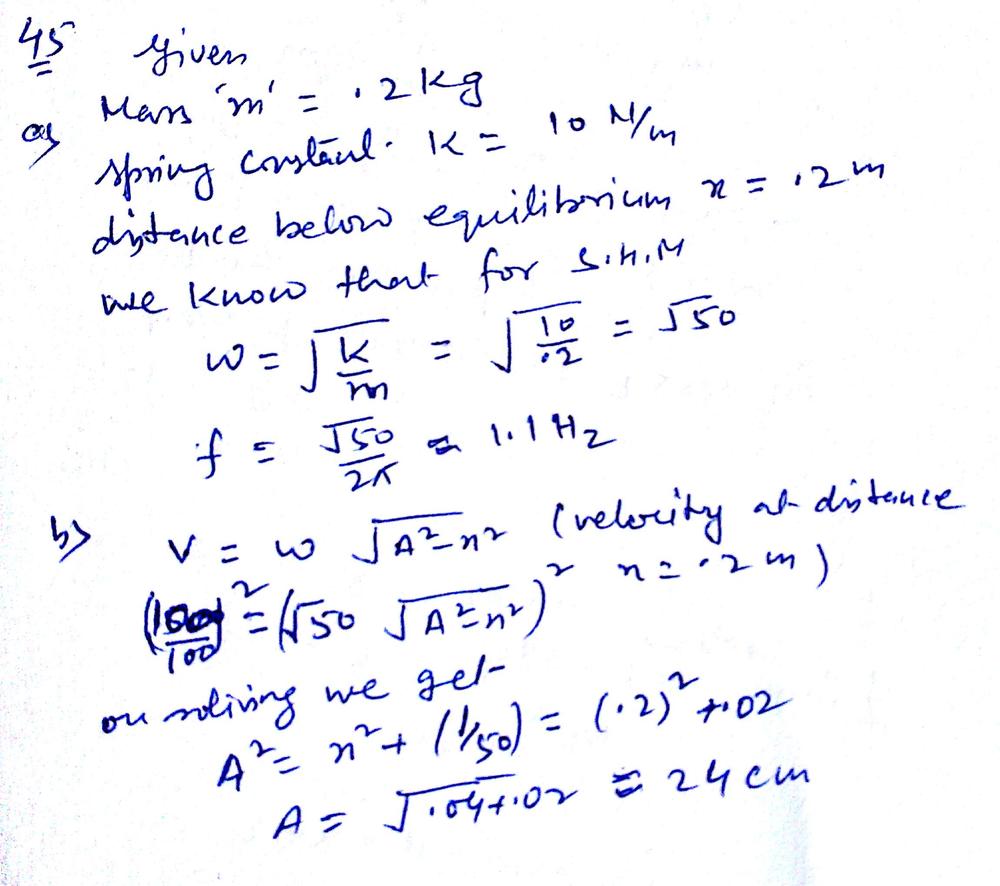 45 Given
a) Mass 'm' = .2 kg
spring constant. K = 10 N/m
distance below equilibrium x = .2 m
we know that for S.H.M
ω = √(k/m) = √(10/.2) = √50
f = √50/2π ≈ 1.1 Hz
b) V = ω √(A²-x²) (velocity at distance
x = .2 m)
(100/100)² = (√50 √(A²-x²))²
on solving we get-
A² = x² + (1/50) = (.2)² + .02
A = √(.04+.02) = 24 cm